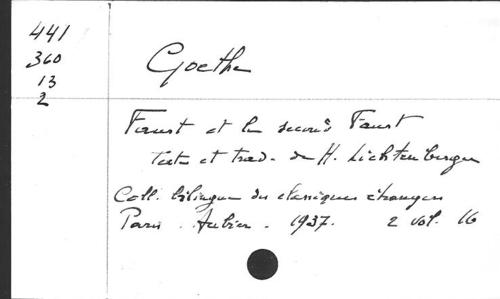 441
360
13
2
Goethe
Faust et le second Faust
Texte et trad. de H. Lichtenberger
Coll. bilingue des classiques étrangers
Paris. Aubier. 1937. 2 vol. 16